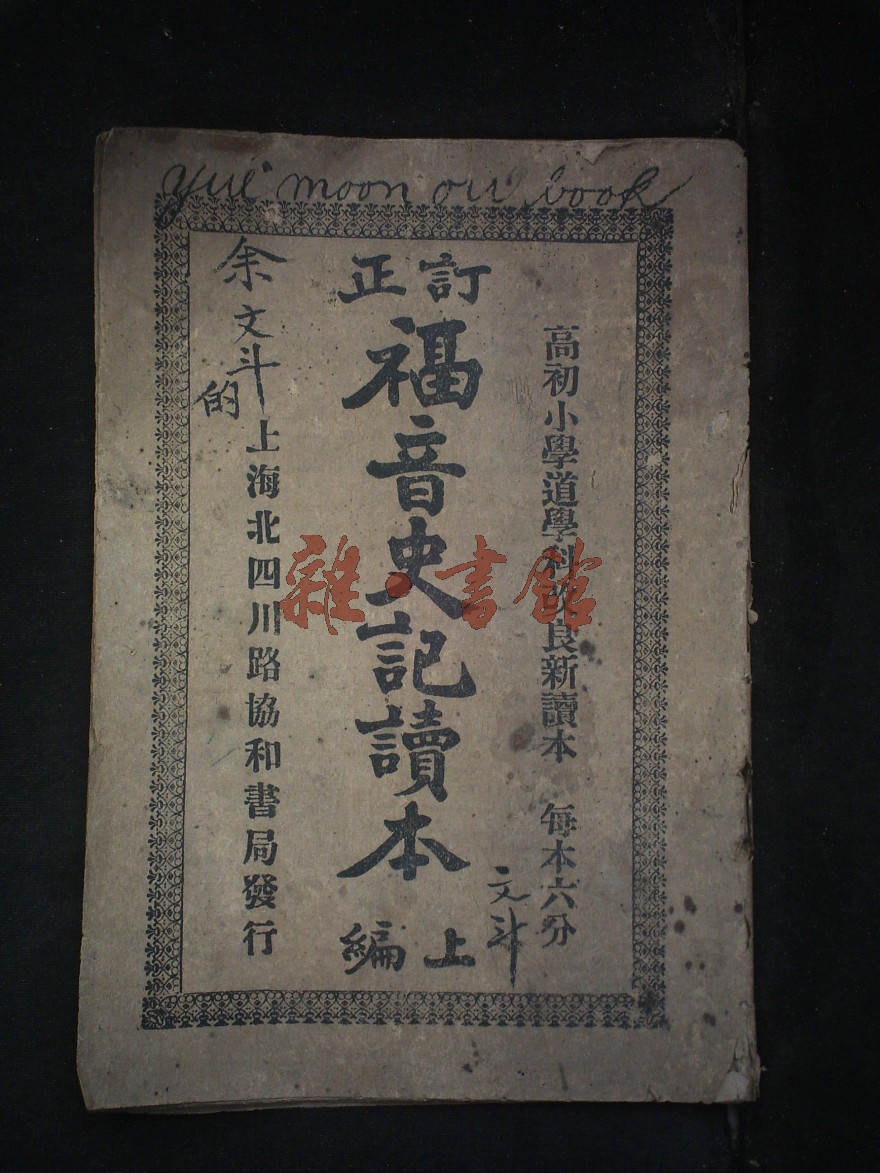 yue moon ou book
高初小學道學科改良新讀本 每本六分
訂正
福音史記讀本
上編
文斗
上海北四川路協和書局發行
余文斗的
雜·書館